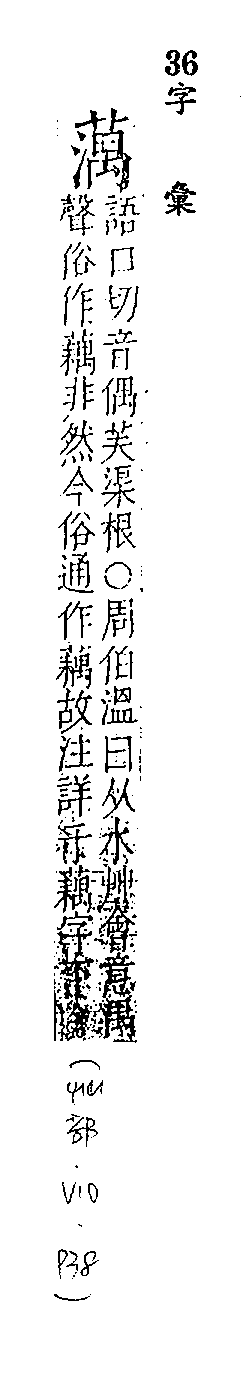 36 字彙
蕅
語口切音偶芙渠根○周伯溫曰从水艸會意禺
聲俗作藕非然今俗通作藕故注詳于藕字
(艸部.V10.P38)